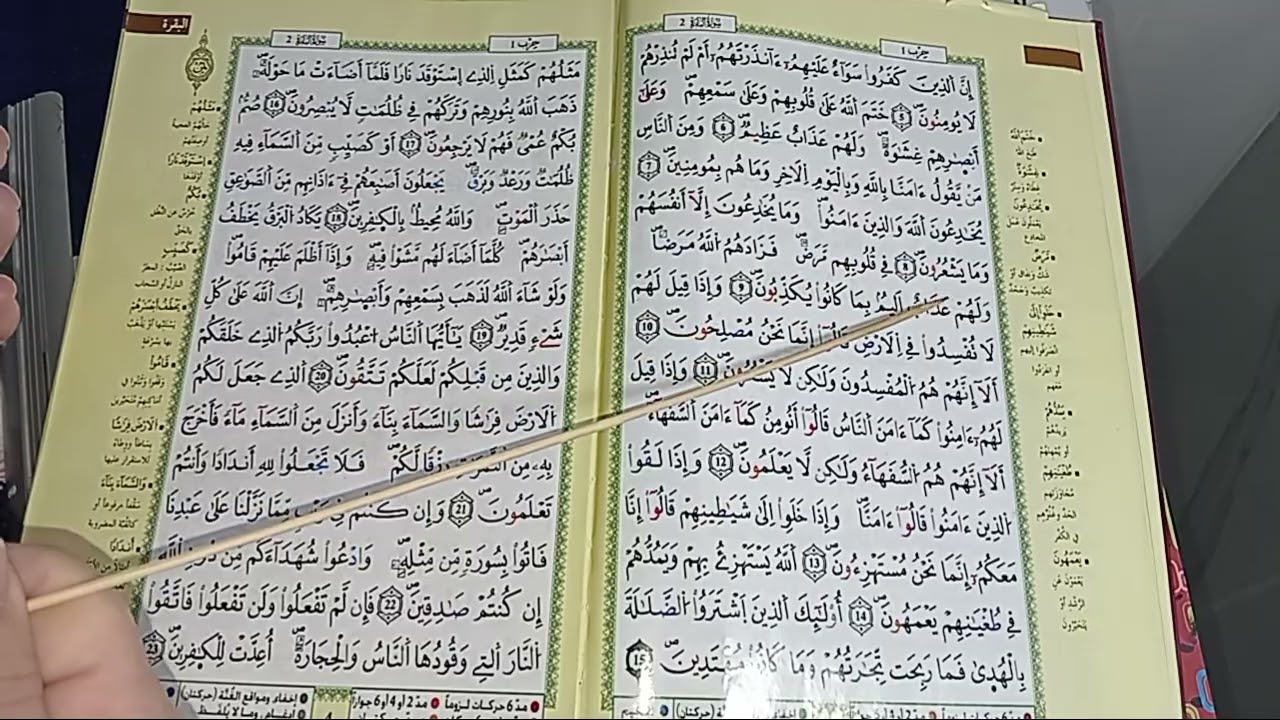 سورة البقرة 2
حزب 1
إِنَّ الَذِينَ كَفَرُوا سَوَآءٌ عَلَيْهِمُۥٓ ءَآنذَرْتَهُمُۥٓ أَمْ لَمْ تُنذِرْهُمْ
لَا يُومِنُونَ 5 خَتَمَ اَللَّهُ عَلَىٰ قُلُوبِهِمْ وَعَلَىٰ سَمْعِهِمْ وَعَلَىٰ
أَبْصَٰرِهِمْ غِشَٰوَةٌ وَلَهُمْ عَذَابٌ عَظِيمٌ 6 وَمِنَ اَلنَّاسِ
مَنْ يَّقُولُ ءَامَنَّا بِاللَّهِ وَبِالْيَوْمِ اِلَاخِرِ وَمَا هُم بِمُومِنِينَ 7
يُخَٰدِعُونَ اَللَّهَ وَالذِينَ ءَامَنُوا وَمَا يُخَٰدِعُونَ إِلَّآ أَنفُسَهُمْ
وَمَا يَشْعُرُونَ 8 فِي قُلُوبِهِم مَّرَضٌ فَزَادَهُمُ اُللَّهُ مَرَضًا
وَلَهُمْ عَذَابٌ اَلِيمٌ بِمَا كَانُوا يُكَذِّبُونَ 9 وَإِذَا قِيلَ لَهُمْ
لَا تُفْسِدُوا فِي اِلَارْضِ قَالُوٓا إِنَّمَا نَحْنُ مُصْلِحُونَ 10
أَلَآ إِنَّهُمْ هُمُ اُلْمُفْسِدُونَ وَلَٰكِن لَّا يَشْعُرُونَ 11 وَإِذَا قِيلَ
لَهُمُۥٓ ءَامِنُوا كَمَآ ءَامَنَ اَلنَّاسُ قَالُوٓا أَنُومِنُ كَمَآ ءَامَنَ اَلسُّفَهَآءُ
أَلَآ إِنَّهُمْ هُمُ اُلسُّفَهَآءُ وَلَٰكِن لَّا يَعْلَمُونَ 12 وَإِذَا لَقُوا
اُلذِينَ ءَامَنُوا قَالُوٓا ءَامَنَّا وَإِذَا خَلَوِا اِلَىٰ شَيَٰطِينِهِمْ قَالُوٓا إِنَّا
مَعَكُمُۥٓ إِنَّمَا نَحْنُ مُسْتَهْزِءُونَ 13 اَللَّهُ يَسْتَهْزِئُ بِهِمْ وَيَمُدُّهُمْ
فِي طُغْيَٰنِهِمْ يَعْمَهُونَ 14 أُوْلَٰٓئِكَ اَلذِينَ اَشْتَرَوُا اُلضَّلَٰلَةَ
بِالْهُدَىٰ فَمَا رَبِحَت تِّجَٰرَتُهُمْ وَمَا كَانُوا مُهْتَدِينَ 15
البقرة
سورة البقرة 2
حزب 1
مَثَلُهُمْ كَمَثَلِ اِلذِي اِسْتَوْقَدَ نَارًا فَلَمَّآ أَضَآءَتْ مَا حَوْلَهُۥ
ذَهَبَ اَللَّهُ بِنُورِهِمْ وَتَرَكَهُمْ فِي ظُلُمَٰتٍ لَّا يُبْصِرُونَ 16 صُمٌّ
بُكْمٌ عُمْيٌ فَهُمْ لَا يَرْجِعُونَ 17 أَوْ كَصَيِّبٍ مِّنَ اَلسَّمَآءِ فِيهِ
ظُلُمَٰتٌ وَرَعْدٌ وَبَرْقٌ يَجْعَلُونَ أَصَٰبِعَهُمْ فِي ءَاذَانِهِم مِّنَ اَلصَّوَٰعِقِ
حَذَرَ اَلْمَوْتِ وَاللَّهُ مُحِيطٌ بِالْكَٰفِرِينَ 18 يَكَادُ اُلْبَرْقُ يَخْطَفُ
أَبْصَٰرَهُمْ كُلَّمَآ أَضَآءَ لَهُم مَّشَوْا فِيهِ وَإِذَآ أَظْلَمَ عَلَيْهِمْ قَامُوا
وَلَوْ شَآءَ اَللَّهُ لَذَهَبَ بِسَمْعِهِمْ وَأَبْصَٰرِهِمْ إِنَّ اَللَّهَ عَلَىٰ كُلِّ
شَيْءٍ قَدِيرٌ 19 يَٰٓأَيُّهَا اَلنَّاسُ اُعْبُدُوا رَبَّكُمُ اُلذِي خَلَقَكُمْ
وَالذِينَ مِن قَبْلِكُمْ لَعَلَّكُمْ تَتَّقُونَ 20 اَلذِي جَعَلَ لَكُمُ
اُلَارْضَ فِرَٰشًا وَالسَّمَآءَ بِنَآءً وَأَنزَلَ مِنَ اَلسَّمَآءِ مَآءً فَأَخْرَجَ
بِهِۦ مِنَ اَلثَّمَرَٰتِ رِزْقًا لَّكُمْ فَلَا تَجْعَلُوا لِلهِ أَندَادًا وَأَنتُمْ
تَعْلَمُونَ 21 وَإِن كُنتُمْ فِي رَيْبٍ مِّمَّا نَزَّلْنَا عَلَىٰ عَبْدِنَا
فَاتُوا بِسُورَةٍ مِّن مِّثْلِهِۦ وَادْعُوا شُهَدَآءَكُم مِّن دُونِ اِللَّهِ
إِن كُنتُمْ صَٰدِقِينَ 22 فَإِن لَّمْ تَفْعَلُوا وَلَن تَفْعَلُوا فَاتَّقُوا
اُلنَّارَ اَلتِي وَقُودُهَا اَلنَّاسُ وَالْحِجَارَةُ أُعِدَّتْ لِلْكَٰفِرِينَ 23